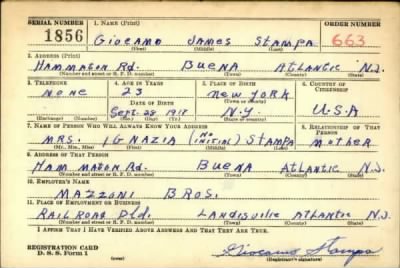 SERIAL NUMBER 1. NAME (Print) ORDER NUMBER
1856 GIOCAMO JAMES STAMPA 663
(First) (Middle) (Last)
2. ADDRESS (Print)
HAMMATON Rd. BUENA ATLANTIC N.J.
(Number and street or R. F. D. number) (Town) (County) (State)
3. TELEPHONE 4. AGE IN YEARS 5. PLACE OF BIRTH 6. COUNTRY OF CITIZENSHIP
NONE 23 NEW YORK
DATE OF BIRTH (Town or county)
Sept. 28 1917 N.Y. U.S.A
(Exchange) (Number) (Mo.) (Day) (Yr.) (State or country)
7. NAME OF PERSON WHO WILL ALWAYS KNOW YOUR ADDRESS 8. RELATIONSHIP OF THAT PERSON
MRS. IGNAZIA (NO INITIAL) STAMPA MOTHER
(Mr., Mrs., Miss) (First) (Middle) (Last)
9. ADDRESS OF THAT PERSON
HAMMATON Rd. BUENA ATLANTIC N.J.
(Number and street or R. F. D. number) (Town) (County) (State)
10. EMPLOYER'S NAME
MAZZONI BROS.
11. PLACE OF EMPLOYMENT OR BUSINESS
RAILROAD LANDISVILLE ATLANTIC N.J.
(Number and street or R. F. D. number) (Town) (County) (State)
I AFFIRM THAT I HAVE VERIFIED ABOVE ANSWERS AND THAT THEY ARE TRUE.
REGISTRATION CARD
D. S. S. Form 1 Giocamo Stampa
(Registrant's signature)